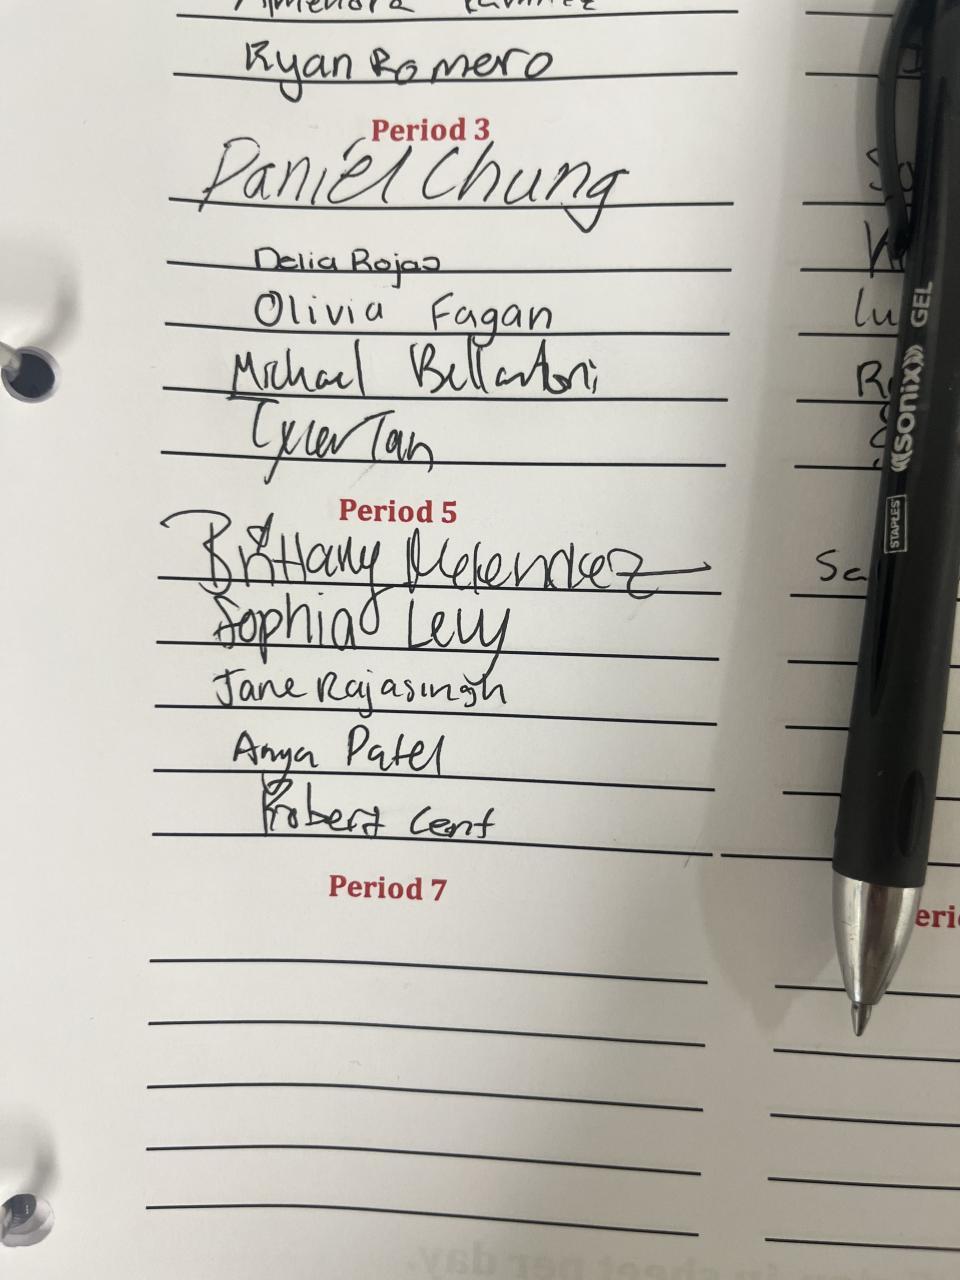 Ryan Romero
Period 3
Daniel Chung
Delia Rojas
Olivia Fagan
Michael Bellantoni
Tyler Tan
Period 5
Brittany Melendez
Sophia Levy
Jane Rajasingh
Anya Patel
Robert Cent
Period 7
Lu
Sa
STAPLES
SONIX GEL
per day.